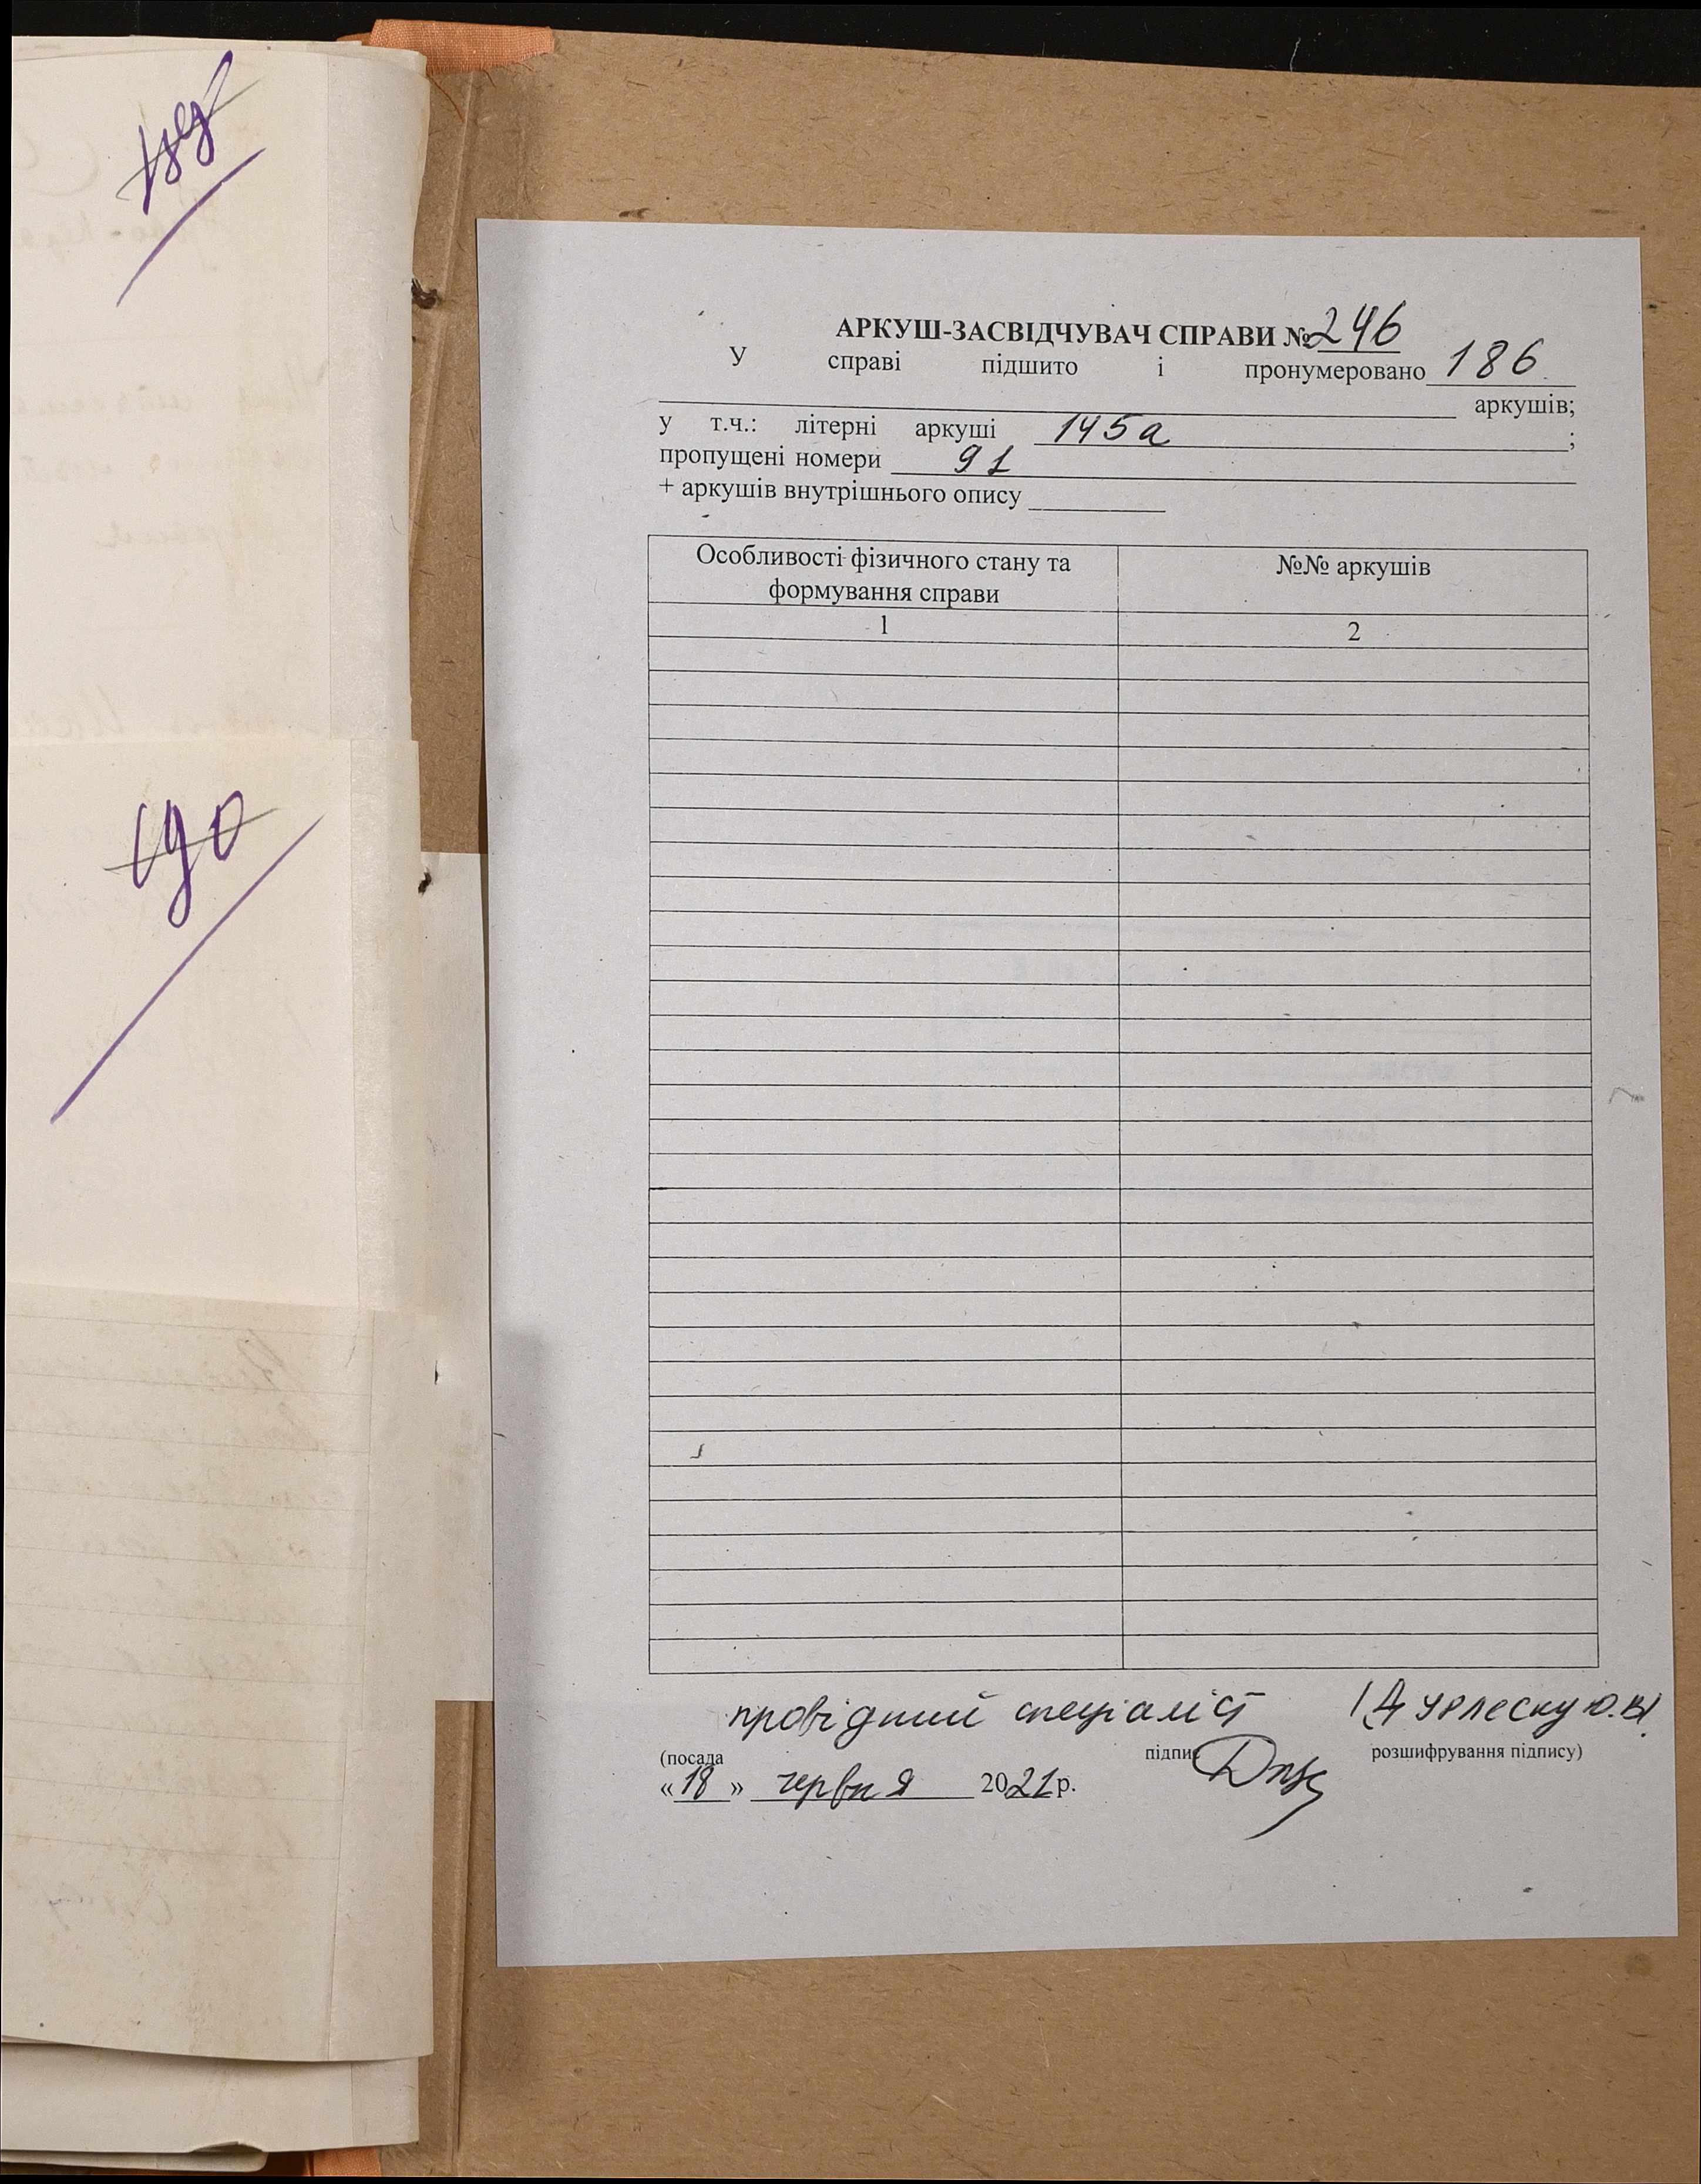 190
АРКУШ-ЗАСВІДЧУВАЧ СПРАВИ № 246
У справі підшито і пронумеровано 186
аркушів;
у т.ч.: літерні аркуші 145а ;
пропущені номери 91
+ аркушів внутрішнього опису
Особливості фізичного стану та формування справи
№№ аркушів
1
2
провідний спеціаліст Дурлеску Ю.В.
(посада
підпис
розшифрування підпису)
«18» червня 2021р.